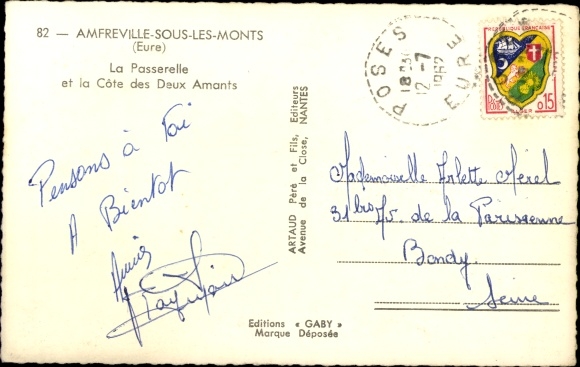 82 — AMFREVILLE-SOUS-LES-MONTS
(Eure)
La Passerelle
et la Côte des Deux Amants
Pensons à Toi
A Bientot
Annie
ARTAUD Père et Fils, Editeurs
Avenue de la Close, NANTES
Editions « GABY »
Marque Déposée
POSES
18H
12-7
1962
EURE
REPUBLIQUE FRANÇAISE
POSTES
ALGER
0,15
Mademoiselle Arlette Mérel
31 bis Av. de la Parisienne
Bondy
Seine